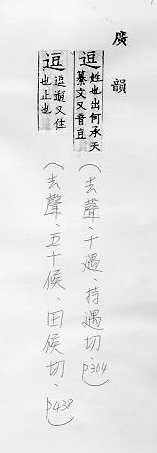 廣韻
逗 姓也出何承天
纂文又音豆
（去聲．十遇．持遇切．p364）
逗 逗遛又住
也止也
（去聲．五十候．田候切．p438）